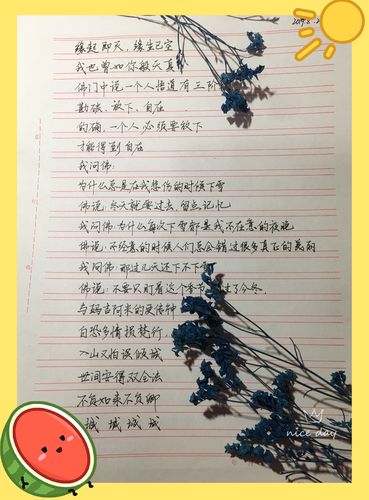 2019.8.2
缘起即灭，缘生已空
我也曾如你般天真
佛门中说一个人悟道有三阶
勘破、放下、自在
的确，一个人必须要放下
才能得到自在
我问佛：
为什么总是在我悲伤的时候下雪
佛说：冬天就要过去，留点记忆
我问佛：为什么每次下雪都是我不在意的夜晚
佛说：不经意的时候人们总会错过很多真正的美丽
我问佛：那过几天还下不下雪
佛说：不要只盯着这个季节，
今冬，
与玛吉阿米的更传神
自恐多情损梵行，
入山又怕误倾城
世间安得双全法
不负如来不负卿
城 城 城 诚
nice day